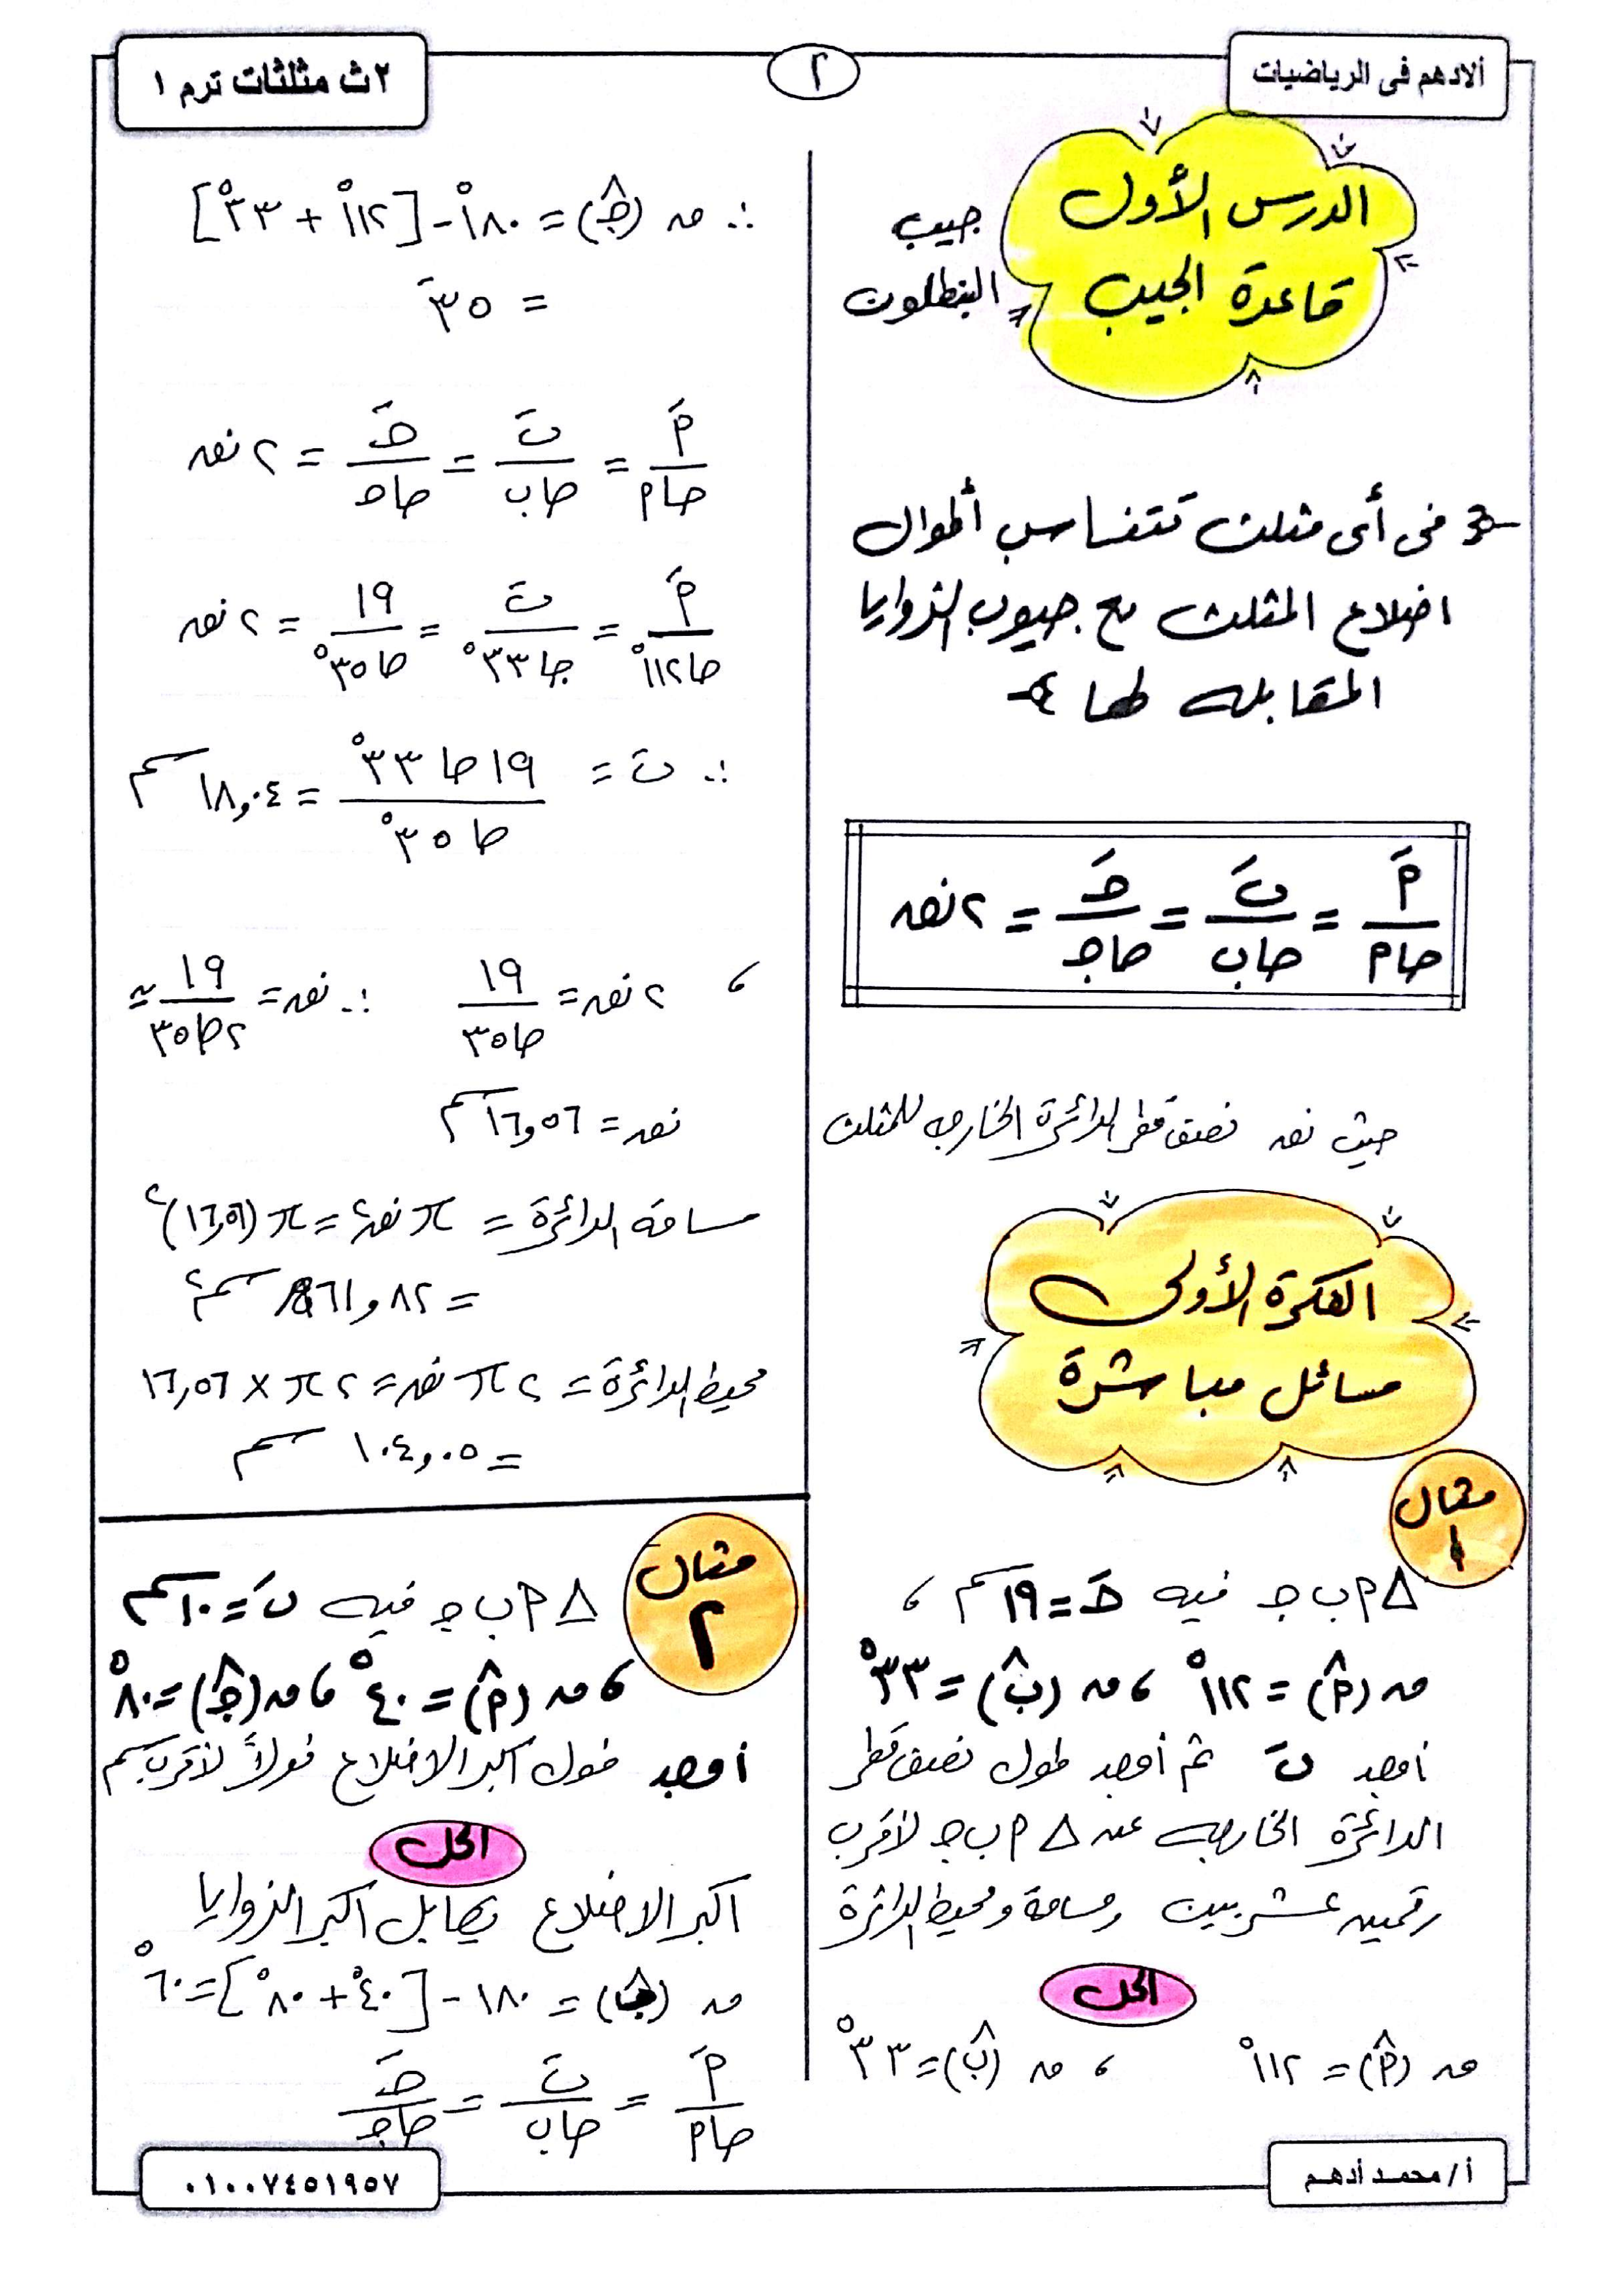 ألادهم فى الرياضيات
٢
٢ث مثلثات ترم ١
الدرس الأول
قاعدة الجيب
جيب
البنطلون
فى أى مثلث تتناسب أطوال
اضلاع المثلث مع جيوب الزوايا
المقابله لها
أَ/حاأ = بَ/حاب = جَ/حاجـ = ٢نق
حيث نق نصف قطر الدائرة الخارجه للمثلث
الفكرة الأولى
مسائل مباشرة
مثال
١
Δ أ ب جـ فيه جَ = ١٩ سم ،
ق (أ̂) = ١١٢° ، ق (ب̂) = ٣٣°
أوجد بَ ثم أوجد طول نصف قطر
الدائرة الخارجه عن Δ أ ب جـ لأقرب
رقمين عشريين ومساحة ومحيط الدائرة
الحل
ق (أ̂) = ١١٢° ، ق (ب̂) = ٣٣°
∴ ق (جـ̂) = ١٨٠° - [١١٢° + ٣٣°]
= ٣٥°
أَ/حاأ = بَ/حاب = جَ/حاجـ = ٢ نق
أَ/حا١١٢° = بَ/جا٣٣° = ١٩/حا٣٥° = ٢ نق
∴ بَ = ١٩ حا ٣٣°/حا ٣٥° = ١٨,٠٤ سم
، ٢ نق = ١٩/حا٣٥ ∴ نق = ١٩/٢حا٣٥ ≃
نق = ١٦,٥٦ سم
مساحة الدائرة = π نق٢ = π (١٦,٥٦)٢
= ٨٦١,٨٢ سم٢
محيط الدائرة = ٢ π نق = ٢ π × ١٦,٥٦
= ١٠٤,٠٥ سم
مثال
٢
Δ أ ب جـ فيه بَ = ١٠ سم
، ق (أ̂) = ٤٠° ، ق (جـ̂) = ٨٠°
أوجد طول اكبر الاضلاع طولاً لأقرب سم
الحل
اكبر الاضلاع يقابل اكبر الزوايا
ق (ب̂) = ١٨٠ - [٤٠° + ٨٠°] = ٦٠°
أَ/حاأ = بَ/حاب = جَ/حاجـ
أ/ محمد أدهم
٠١٠٠٧٤٥١٩٥٧